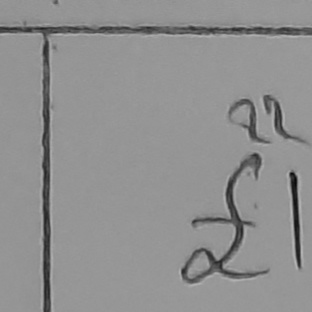 22
£1